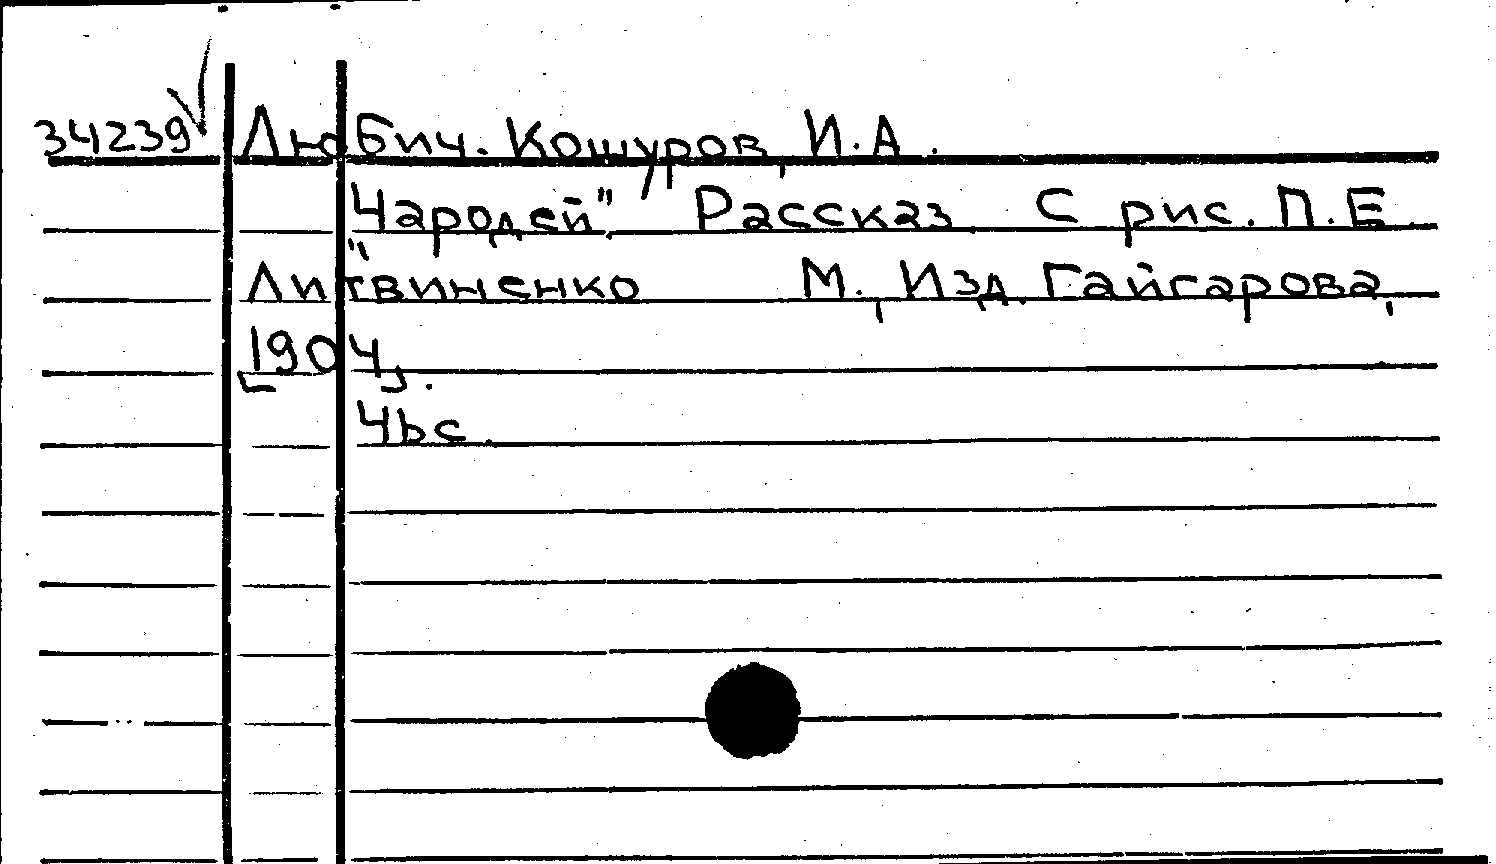 34239 Любич. Кошуров, И.А.
"Чародей". Рассказ. С рис. П.Е.
Литвиненко М., Изд. Гайгарова,
[1904].
4bc.